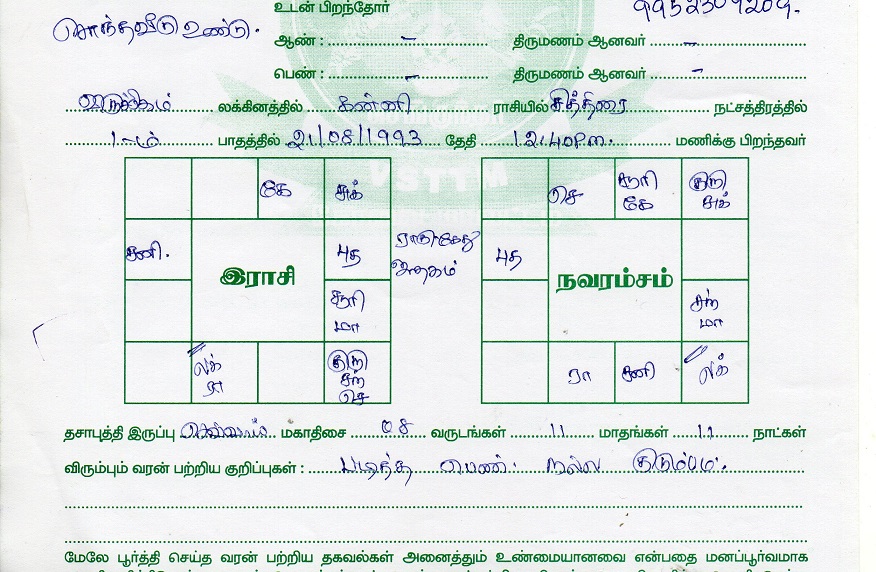 சொந்தவீடு உண்டு.
உடன் பிறந்தோர்
ஆண் : – திருமணம் ஆனவர் –
பெண் : – திருமணம் ஆனவர் –
லக்கினத்தில் கன்னி ராசியில் சித்திரை நட்சத்திரத்தில்
1-ம் பாதத்தில் 21/08/1993 தேதி 12.40 P.m. மணிக்கு பிறந்தவர்
கே சுக் செ சூரி கே குரு சுக்
சனி. புத ராகு-கேது புத
இராசி ஜாதகம் நவாம்சம்
சூரி மா சந் மா
லக் ரா குரு சந் செ ரா சனி லக்
தசாபுத்தி இருப்பு செவ்வாய் மகாதிசை 08 வருடங்கள் 11 மாதங்கள் 11 நாட்கள்
விரும்பும் வரன் பற்றிய குறிப்புகள் : படித்த பெண். நல்ல குடும்பம்.
மேலே பூர்த்தி செய்த வரன் பற்றிய தகவல்கள் அனைத்தும் உண்மையானவை என்பதை மனப்பூர்வமாக